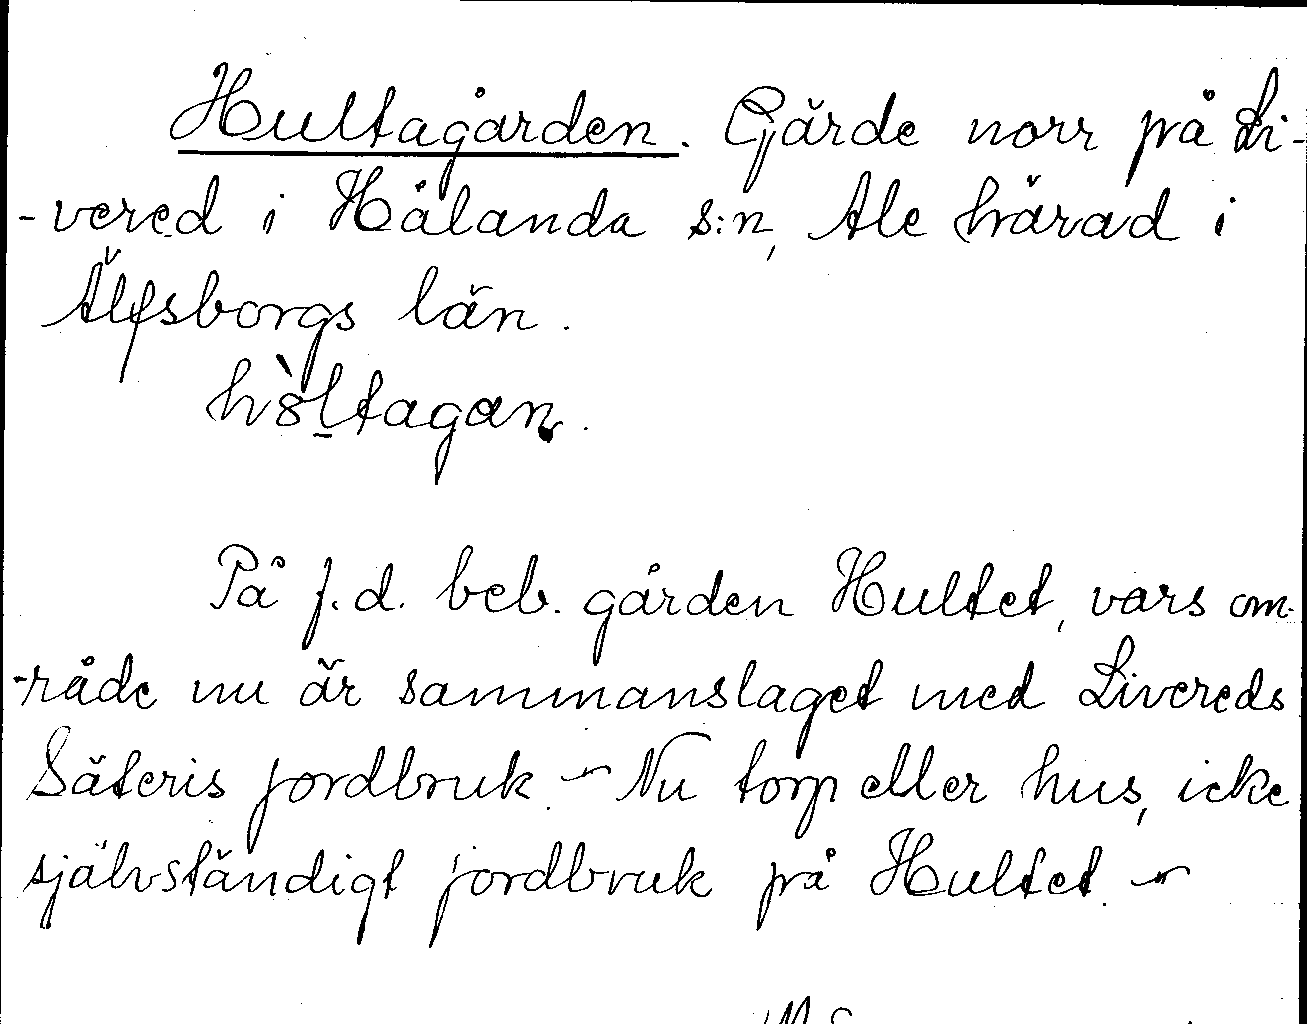 Hultagården. Gärde norr på Li-
-vered i Hålanda s:n, Ale härad i
Älfsborgs län.
hòltagan.
På f.d. beb. gården Hultet, vars om-
-råde nu är sammanslaget med Livereds
Säteris jordbruk. — Nu torp eller hus, icke
självständigt jordbruk på Hultet. —